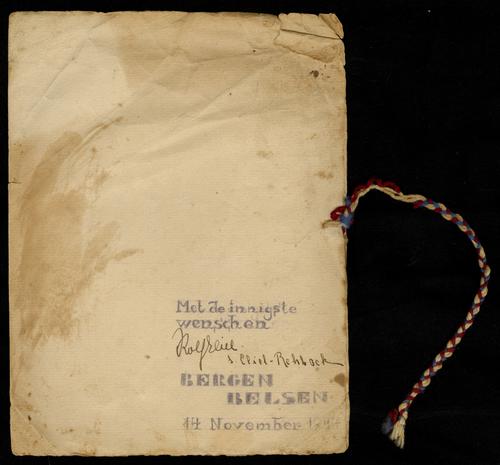 Met de innigste
wenschen
Rolf Eliel
s. Eliel-Rehbock
BERGEN
BELSEN
14 November